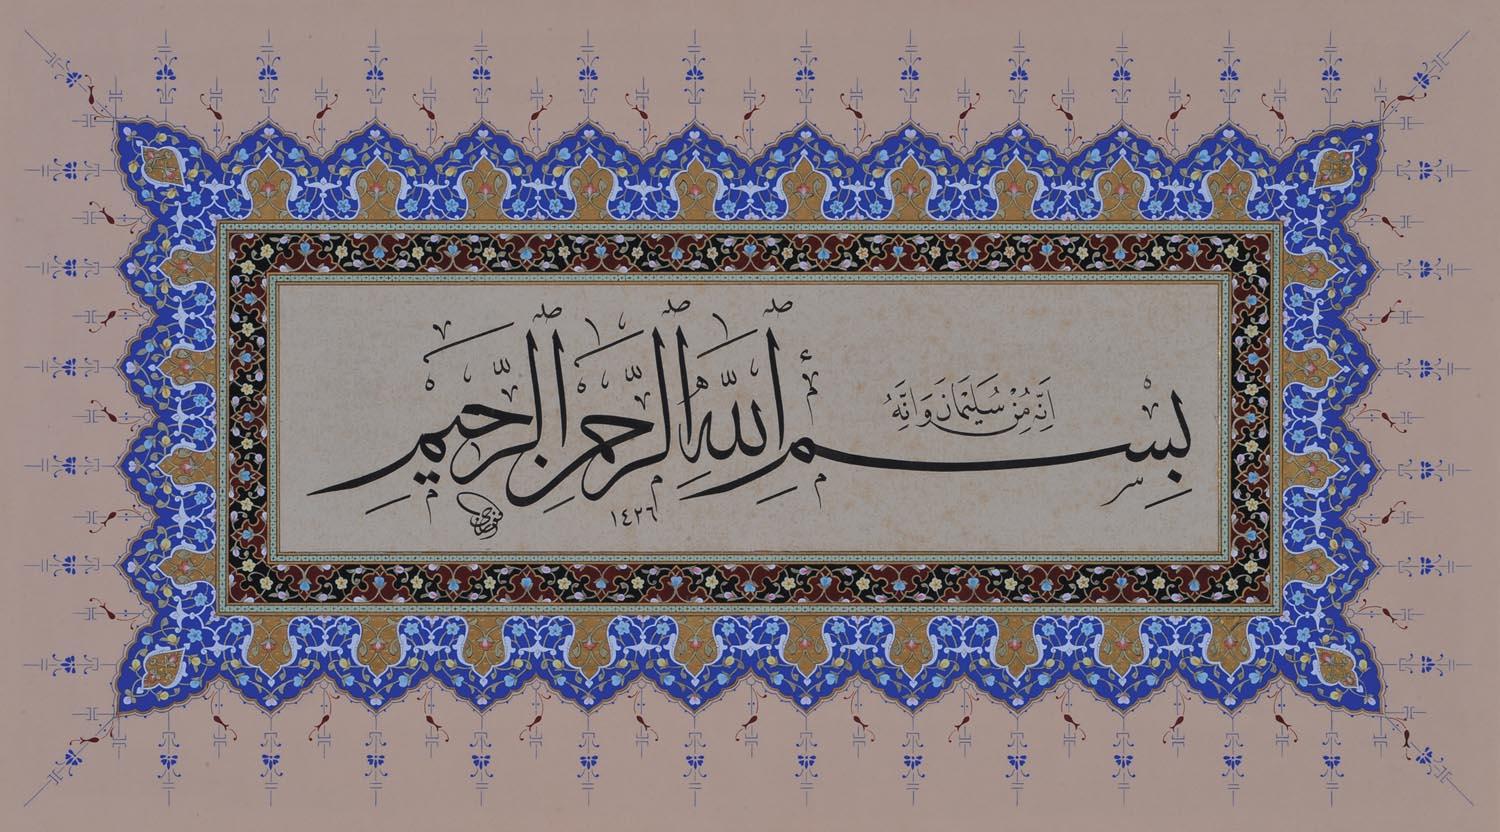 اِنَّهُ مِنْ سُلَيْمٰانَ وَاِنَّهُ
بِسْمِ اللّٰهِ الرَّحْمٰنِ الرَّحِيمِ
١٤٢٦